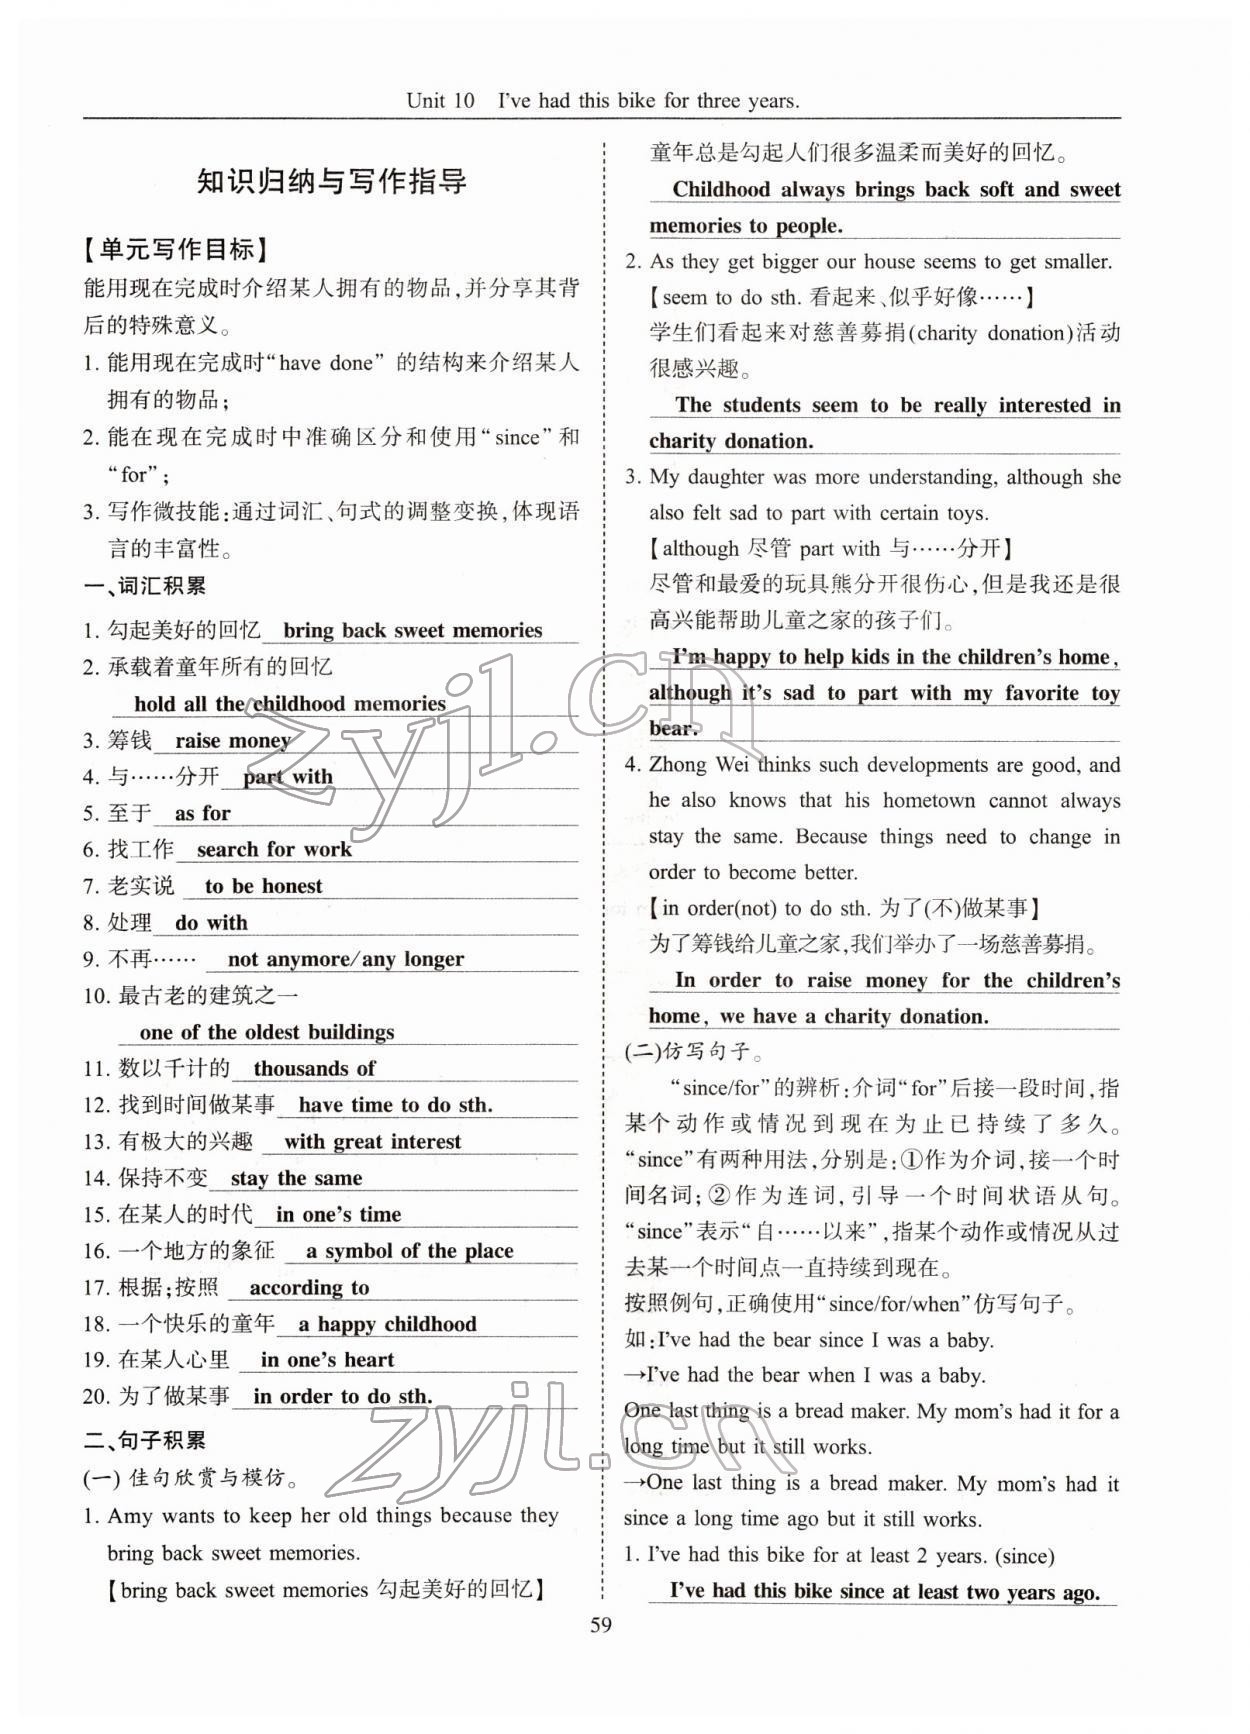 Unit 10 I've had this bike for three years.
知识归纳与写作指导
【单元写作目标】
能用现在完成时介绍某人拥有的物品,并分享其背
后的特殊意义。
1. 能用现在完成时“have done” 的结构来介绍某人
拥有的物品;
2. 能在现在完成时中准确区分和使用“since”和
“for”;
3. 写作微技能:通过词汇、句式的调整变换,体现语
言的丰富性。
一、词汇积累
1. 勾起美好的回忆 bring back sweet memories
2. 承载着童年所有的回忆
hold all the childhood memories
3. 筹钱 raise money
4. 与……分开 part with
5. 至于 as for
6. 找工作 search for work
7. 老实说 to be honest
8. 处理 do with
9. 不再…… not anymore/any longer
10. 最古老的建筑之一
one of the oldest buildings
11. 数以千计的 thousands of
12. 找到时间做某事 have time to do sth.
13. 有极大的兴趣 with great interest
14. 保持不变 stay the same
15. 在某人的时代 in one's time
16. 一个地方的象征 a symbol of the place
17. 根据;按照 according to
18. 一个快乐的童年 a happy childhood
19. 在某人心里 in one's heart
20. 为了做某事 in order to do sth.
二、句子积累
(一) 佳句欣赏与模仿。
1. Amy wants to keep her old things because they
bring back sweet memories.
【bring back sweet memories 勾起美好的回忆】
童年总是勾起人们很多温柔而美好的回忆。
Childhood always brings back soft and sweet
memories to people.
2. As they get bigger our house seems to get smaller.
【seem to do sth. 看起来、似乎好像……】
学生们看起来对慈善募捐(charity donation)活动
很感兴趣。
The students seem to be really interested in
charity donation.
3. My daughter was more understanding, although she
also felt sad to part with certain toys.
【although 尽管 part with 与……分开】
尽管和最爱的玩具熊分开很伤心,但是我还是很
高兴能帮助儿童之家的孩子们。
I'm happy to help kids in the children's home,
although it's sad to part with my favorite toy
bear.
4. Zhong Wei thinks such developments are good, and
he also knows that his hometown cannot always
stay the same. Because things need to change in
order to become better.
【in order(not) to do sth. 为了(不)做某事】
为了筹钱给儿童之家,我们举办了一场慈善募捐。
In order to raise money for the children's
home, we have a charity donation.
(二)仿写句子。
“since/for”的辨析:介词“for”后接一段时间,指
某个动作或情况到现在为止已持续了多久。
“since”有两种用法,分别是:①作为介词,接一个时
间名词;②作为连词,引导一个时间状语从句。
“since”表示“自……以来”,指某个动作或情况从过
去某一个时间点一直持续到现在。
按照例句,正确使用“since/for/when”仿写句子。
如:I've had the bear since I was a baby.
→I've had the bear when I was a baby.
One last thing is a bread maker. My mom's had it for a
long time but it still works.
→One last thing is a bread maker. My mom's had it
since a long time ago but it still works.
1. I've had this bike for at least 2 years. (since)
I've had this bike since at least two years ago.
59
zyjl.cn
zyjl.cn